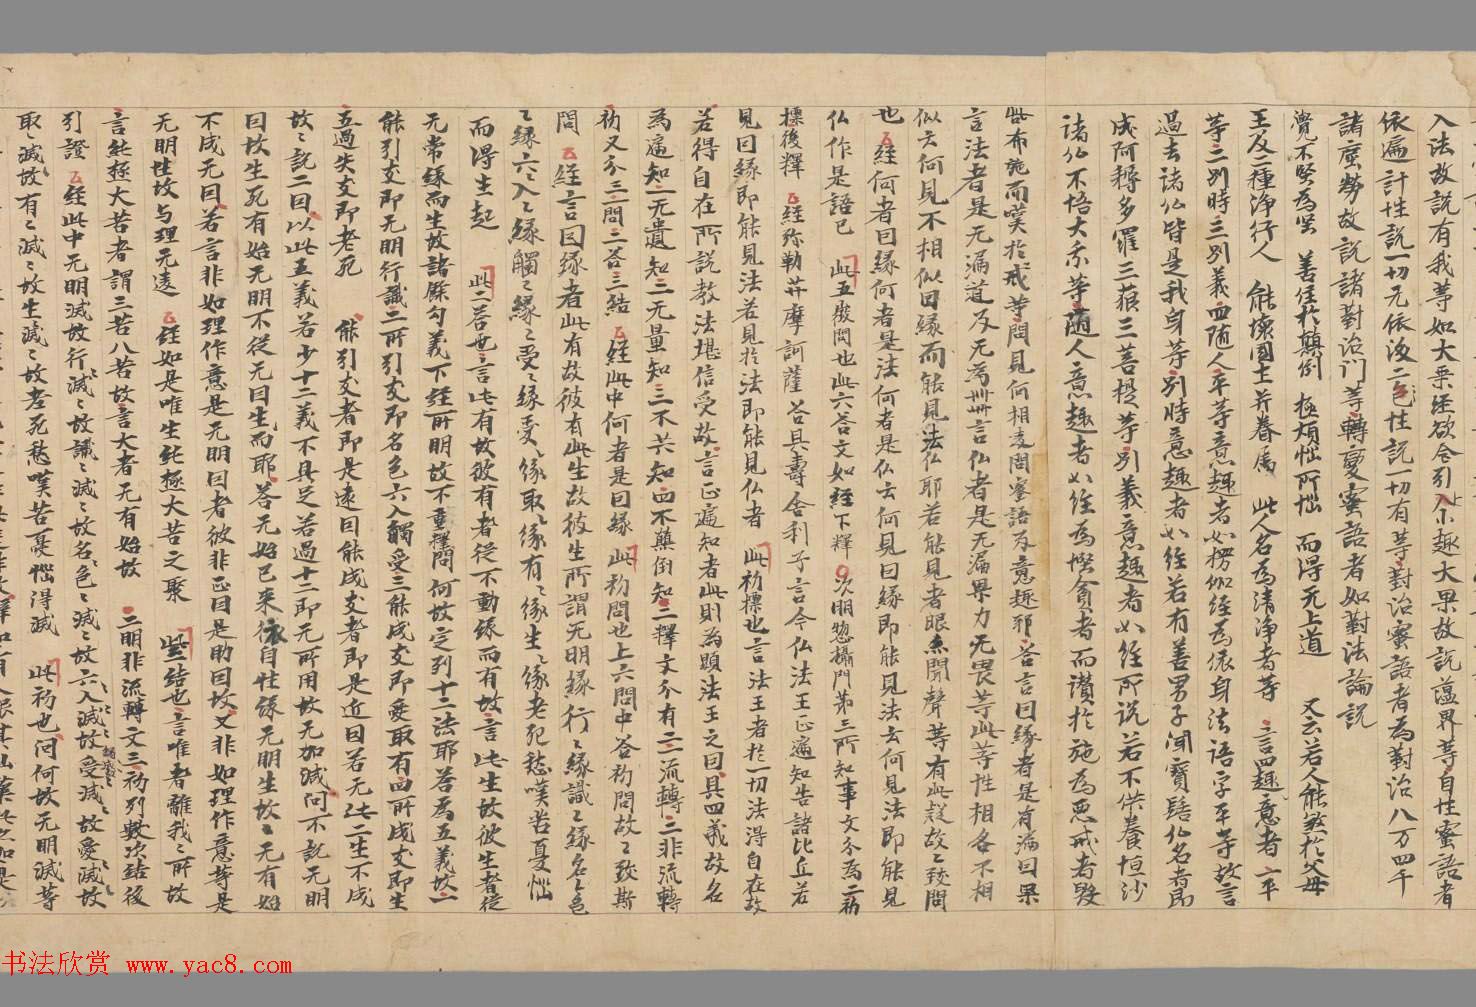 入法故説有我等如大乗経欲令引入小趣大果故説蘊界等自性蜜語者
依遍計性説一切无依後二色性説一切有等對治蜜語者為對治八万四千
諸塵勞故説諸對治门等轉變蜜語者如對法論説
覺不堅為堅 善住於顛倒 極煩惱所惱 而得无上道 又云若人能煞於父母
王及二種浄行人 能壊國土并眷属 此人名為清浄者等 言四趣意者一平
等二別時三別義四随人平等意趣者如楞伽経為依身法语字平等故言
過去諸仏皆是我身等別時意趣者如経若有善男子聞寶髻仏名者即
成阿耨多羅三藐三菩提等別義意趣者如経所説若不供養恒沙
諸仏不悟大乗等随人意趣者如経為慳貪者而讃於施為悪戒者毀
此布施而嘆於戒等問見何相違問蜜語及意趣耶答言因縁者是有漏因果
言法者是无漏道及无為 言仏者是无漏果力无畏等此等性相各不相
似云何見不相似因縁而能見法仏耶若能見者眼亦聞聲等有此疑故之致問
也 経何者因縁何者是法何者是仏云何見因縁即能見法云何見法即能見
仏作是語已 此五徴問也此六答文如経下釋 次明惣攝門第三所知事文分為二初
標後釋 経弥勒菩摩訶薩答具壽舎利子言今仏法王正遍知告諸比丘若
見因縁即能見法若見於法即能見仏者 此初標也言法王者於一切法得自在故
若得自在所説教法堪信受故言正遍知者此則為顕法王之因具四義故名
為遍知一无遺知二无量知三不共知四不顛倒知二釋文分有二一流轉二非流轉
初又分三一問二答三結 経此中何者是因縁 此初問也上六問中答初問故之致斯
問 経言因縁者此有故彼有此生故彼生所謂无明縁行ミ縁識ミ縁名ミ色
ミ縁六ミ入ミ縁觸ミ縁ミ受ミ縁愛ミ縁取ミ縁有ミ縁生ミ縁老死愁嘆苦憂惱
而得生起 此二答也言此有故彼有者從不動縁而有故言此生故彼生者従
无常縁而生故諸餘勾義下経所明故不重釋問何故定列十二法耶答為五義故一
能引支即无明行識二所引支即名色六入觸受三能成支即愛取有四所成支即生
五過失支即老死 能引支者即是遠因能成支者即是近因若无此二生不成
故ミ説二因以此五義若少十二義不具足若過十二即无所用故无加減问不説无明
因故生死有始无明不従无因生而耶答无始已来依自性縁无明生故ミ无有始
不成无因若言非如理作意是无明因者彼非正因是助因故又非如理作意等是
无明性故与理无違 経如是唯生純極大苦之聚 此三结也言唯者離我ミ所故
言純極大苦者謂三苦八苦故言大者无有始故 二明非流轉文三初列數次結後
引證 経此中无明滅故行滅ミ故識ミ滅ミ故名ミ色ミ滅ミ故六入滅ミ故受滅ミ故愛滅故
取ミ滅故有ミ滅ミ故生滅ミ故老死愁嘆苦憂惱得滅 此初也问何故无明滅等